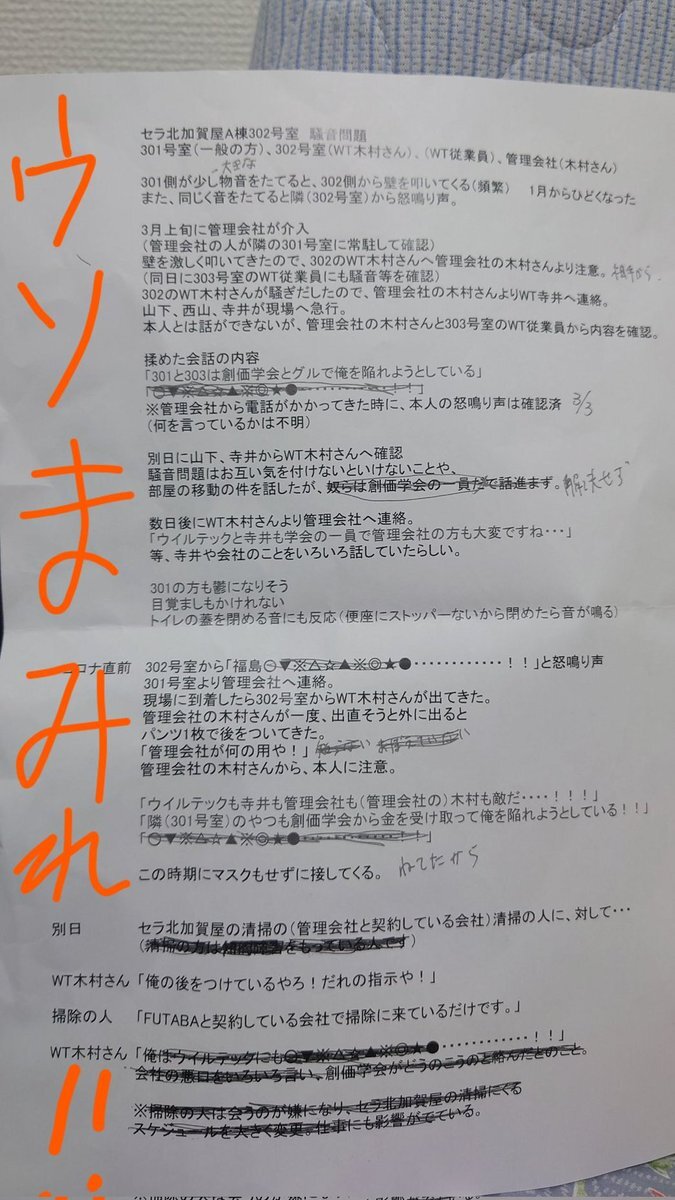 ウソまみれ!!
セラ北加賀屋A棟302号室　騒音問題
301号室(一般の方)、302号室(WT木村さん)、(WT従業員)、管理会社(木村さん)
大きな
301側が少し物音をたてると、302側から壁を叩いてくる(頻繁)　1月からひどくなった
また、同じく音をたてると隣(302号室)から怒鳴り声。
3月上旬に管理会社が介入
(管理会社の人が隣の301号室に常駐して確認)
壁を激しく叩いてきたので、302のWT木村さんへ管理会社の木村さんより注意。
(同日に303号室のWT従業員にも騒音等を確認)
302のWT木村さんが騒ぎだしたので、管理会社の木村さんよりWT寺井へ連絡。
山下、西山、寺井が現場へ急行。
本人とは話ができないが、管理会社の木村さんと303号室のWT従業員から内容を確認。
揉めた会話の内容
「301と303は創価学会とグルで俺を陥れようとしている」
「○▼※△☆▲※◎★●‥‥‥‥‥‥！！」
※管理会社から電話がかかってきた時に、本人の怒鳴り声は確認済 3/3
(何を言っているかは不明)
別日に山下、寺井からWT木村さんへ確認
騒音問題はお互い気を付けないといけないことや、
部屋の移動の件を話したが、奴らは創価学会の一員だで話進まず。解決せず
数日後にWT木村さんより管理会社へ連絡。
「ウイルテックも寺井も学会の一員で管理会社の方も大変ですね・・・」
等、寺井や会社のことをいろいろ話していたらしい。
301の方も鬱になりそう
目覚ましもかけれない
トイレの蓋を閉める音にも反応(便座にストッパーないから閉めたら音が鳴る)
コロナ直前　302号室から「福島○▼※△☆▲※◎★●‥‥‥‥‥‥！！」と怒鳴り声
301号室より管理会社へ連絡。
現場に到着したら302号室からWT木村さんが出てきた。
管理会社の木村さんが一度、出直そうと外に出ると
パンツ1枚で後をついてきた。
「管理会社が何の用や！」
管理会社の木村さんから、本人に注意。
「ウイルテックも寺井も管理会社も(管理会社の)木村も敵だ‥‥！！！」
「隣(301号室)のやつも創価学会から金を受け取って俺を陥れようとしている！！」
「○▼※△☆▲※◎★●‥‥‥‥‥‥！！」
この時期にマスクもせずに接してくる。 ねてたから
別日　セラ北加賀屋の清掃の(管理会社と契約している会社)清掃の人に、対して・・・
(清掃の方は知的障害をもっている人です)
WT木村さん「俺の後をつけているやろ！だれの指示や！」
掃除の人　「FUTABAと契約している会社で掃除に来ているだけです。」
WT木村さん「俺はウイルテックにも○▼※△☆▲※◎★●‥‥‥‥‥‥！！」
会社の悪口をいろいろ言い、創価学会がどうのこうのと絡んだとのこと。
※掃除の人は会うのが嫌になり、セラ北加賀屋の清掃にくる
スケジュールを大きく変更。仕事にも影響がでている。